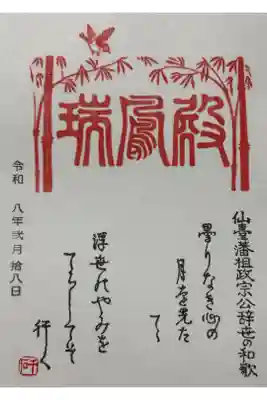 瑞鳳殿
仙臺藩祖政宗公辞世の和歌
曇りなき心の
月を先た
てゝ
浮世のやみを
てらしてそ
行く
令和 八年弐月拾八日